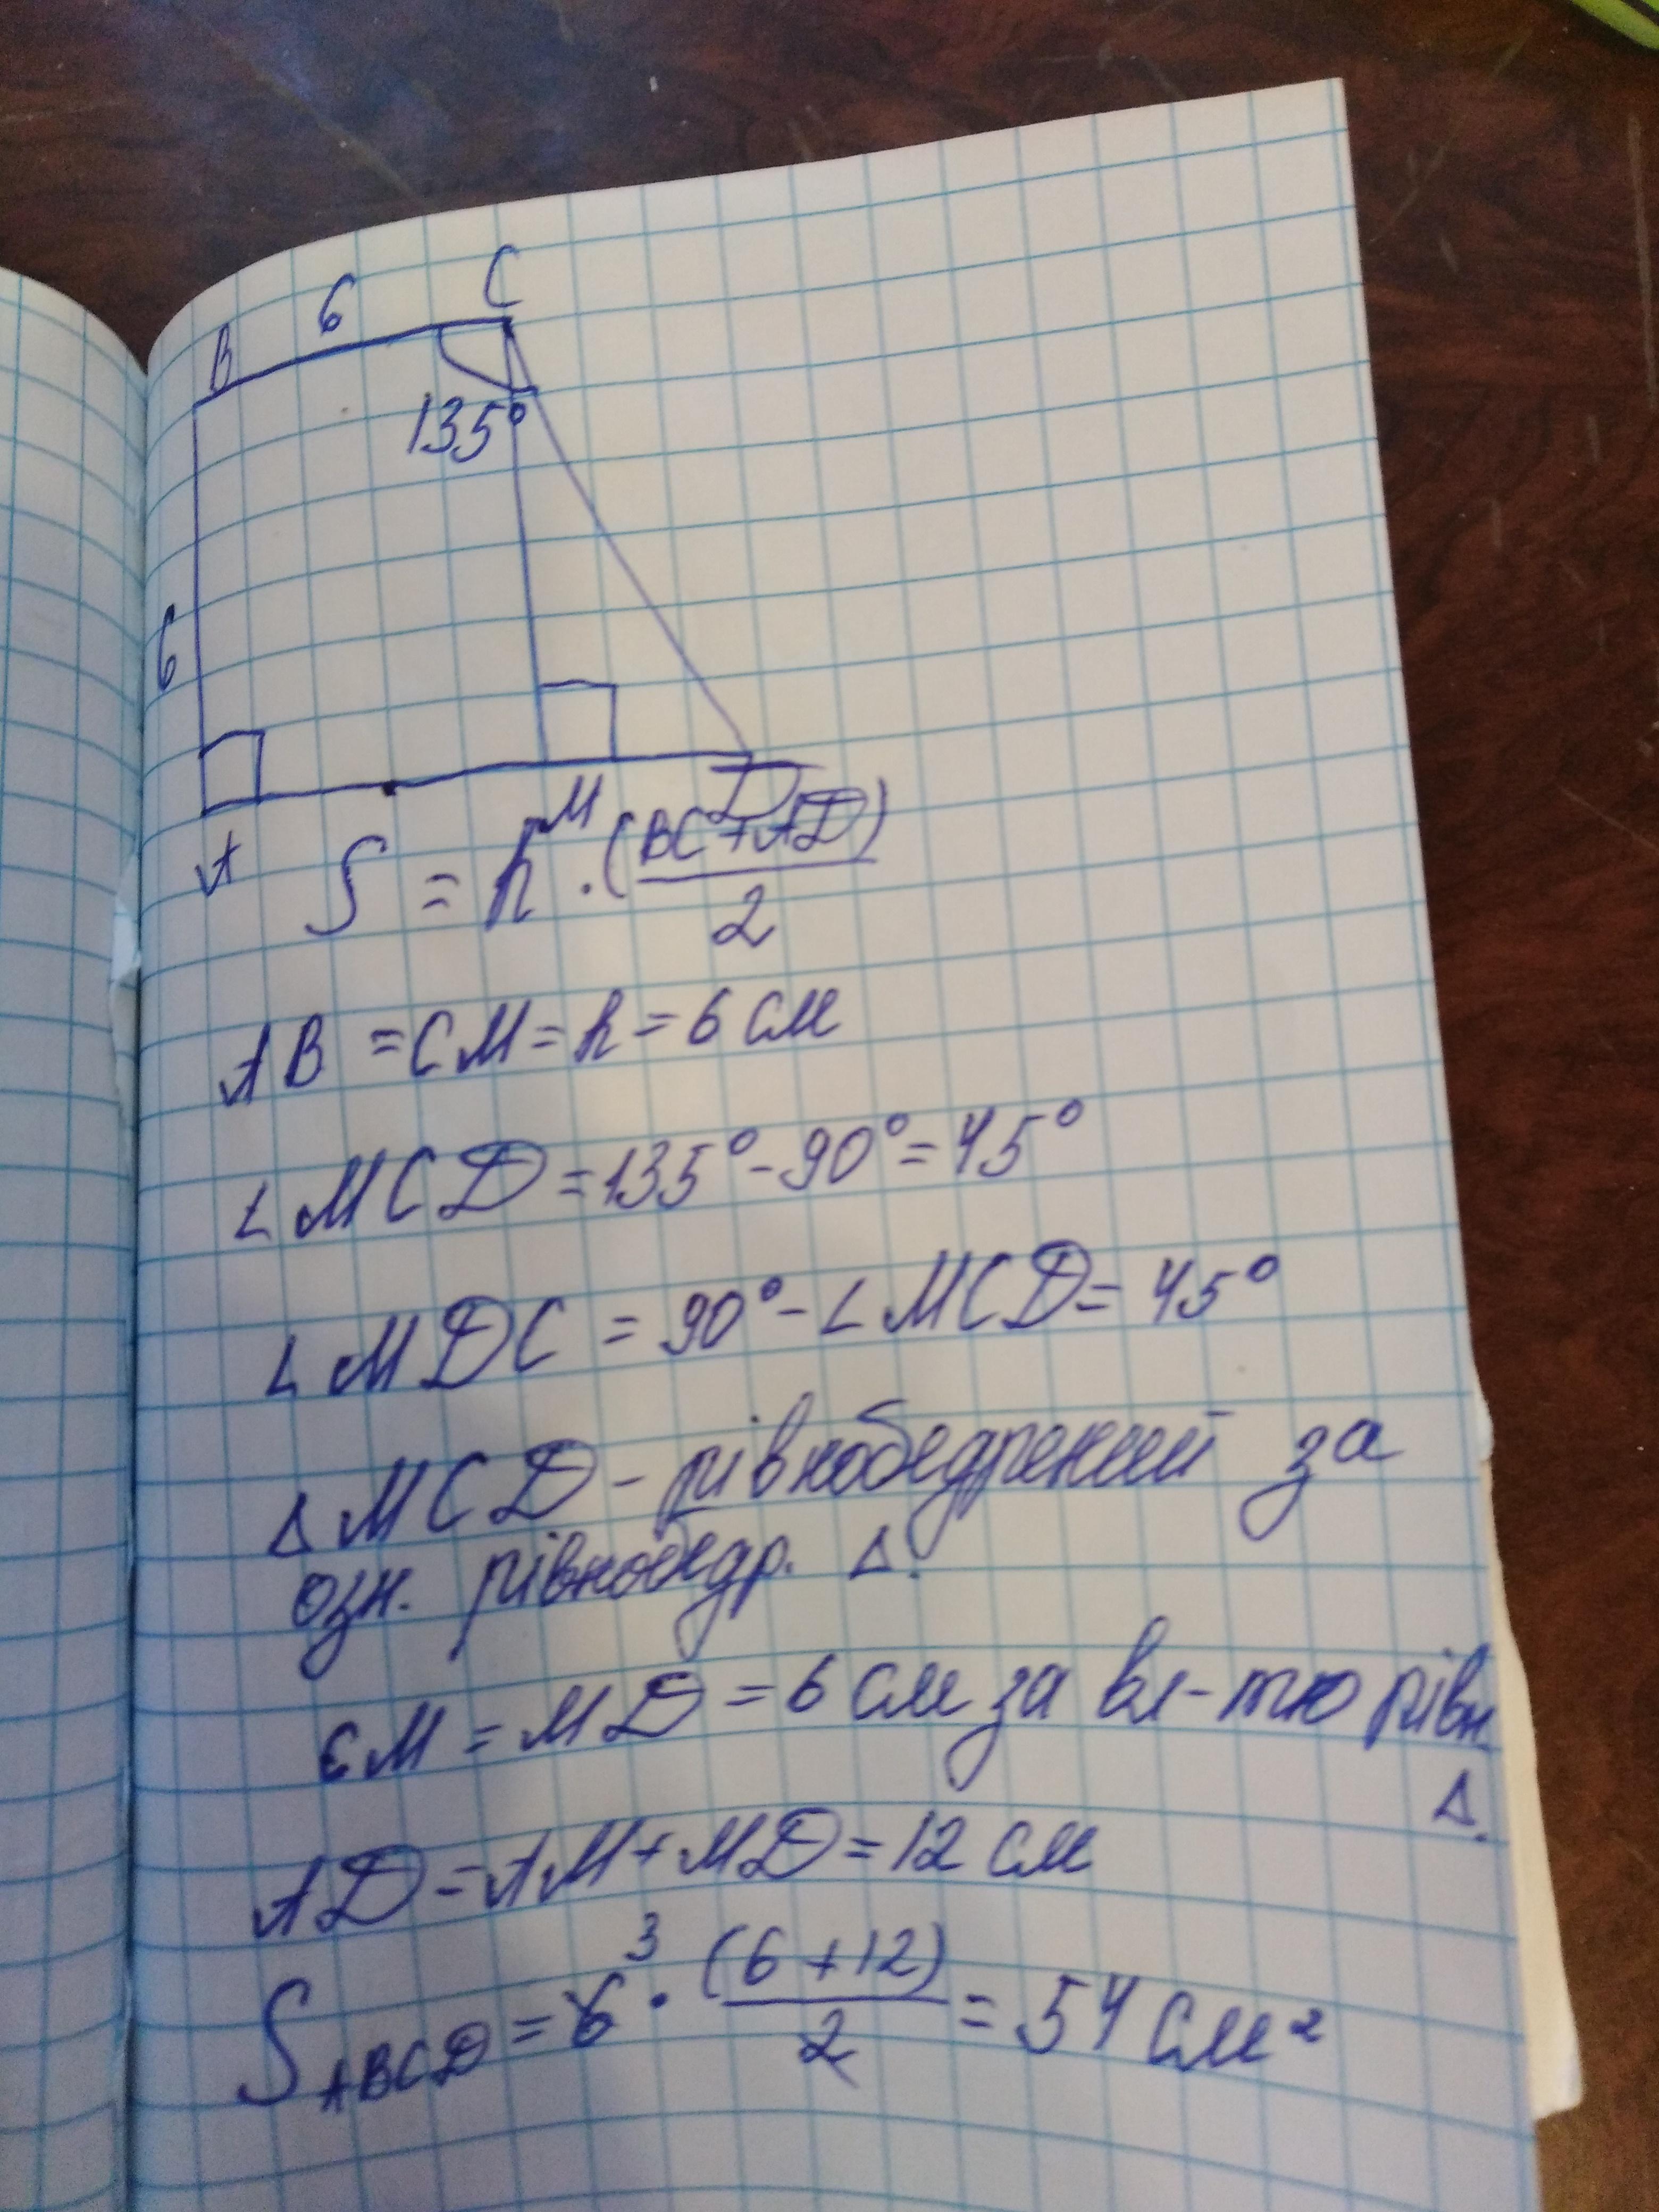 6 C
B
135°
6
M D
A
S = h · (BC+AD)/2
AB = CM = h = 6 см
∠MCD = 135° - 90° = 45°
∠MDC = 90° - ∠MCD = 45°
Δ MCD - рівнобедрений за
озн. рівнобедр. Δ.
CM = MD = 6 см за вл-тю рівн.
Δ.
AD = AM + MD = 12 см
S ABCD = 6 3 · (6 + 12)/2 = 54 см²